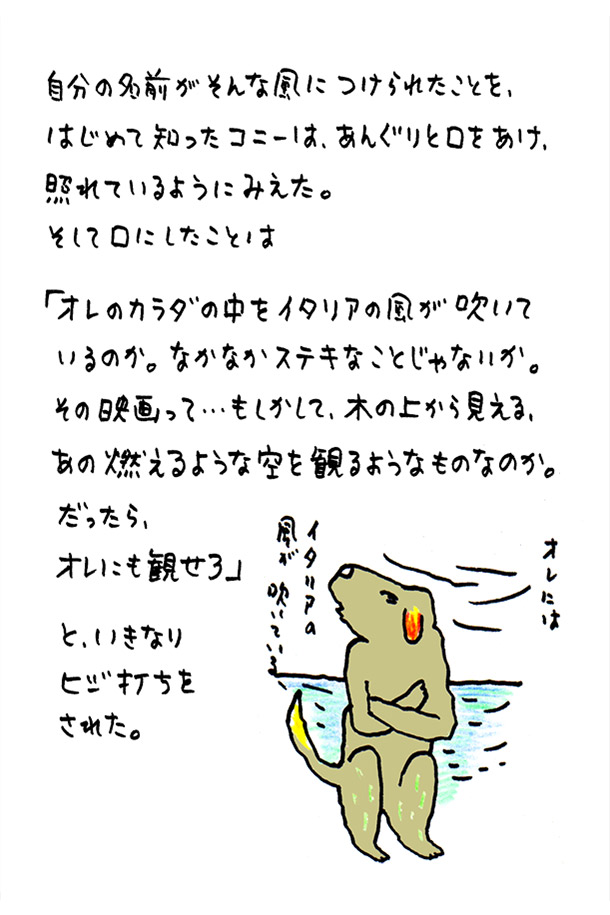 自分の名前がそんな風につけられたことを、
はじめて知ったコニーは、あんぐりと口をあけ、
照れているようにみえた。
そして口にしたことは
「オレのカラダの中をイタリアの風が吹いて
いるのか。なかなかステキなことじゃないか。
その映画って…もしかして、木の上から見える、
あの燃えるような空を観るようなものなのか。
だったら、
オレにも観せろ」
と、いきなり
ヒジ打ちを
された。
オレには
イタリアの
風が
吹いている